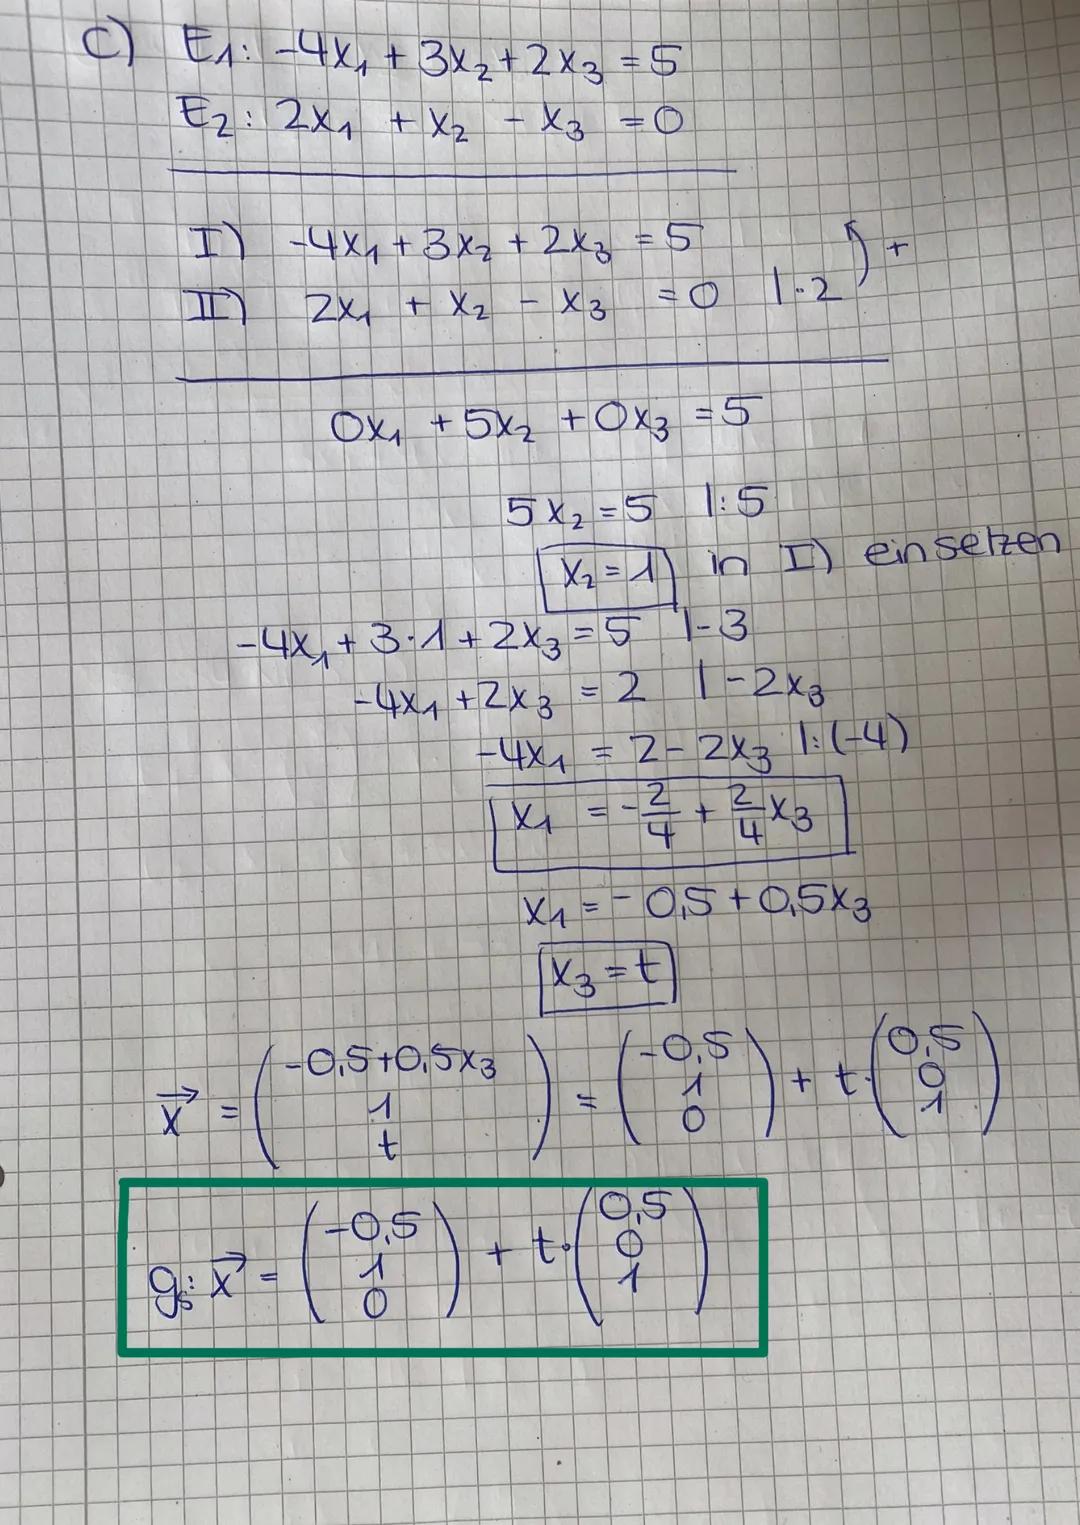 C) E₁: -4x₁ + 3x₂ + 2x₃ = 5
E₂: 2x₁ + x₂ - x₃ = 0
I) -4x₁ + 3x₂ + 2x₃ = 5
II) 2x₁ + x₂ - x₃ = 0 |·2 +
0x₁ + 5x₂ + 0x₃ = 5
5x₂ = 5 |:5
x₂ = 1 in I) einsetzen
-4x₁ + 3·1 + 2x₃ = 5 |-3
-4x₁ + 2x₃ = 2 |-2x₃
-4x₁ = 2 - 2x₃ |:(-4)
x₁ = -2/4 + 2/4 x₃
x₁ = -0,5 + 0,5x₃
x₃ = t
x⃗ = (-0,5+0,5x₃ 1 t) = (-0,5 1 0) + t·(0,5 0 1)
gₛ: x⃗ = (-0,5 1 0) + t·(0,5 0 1)